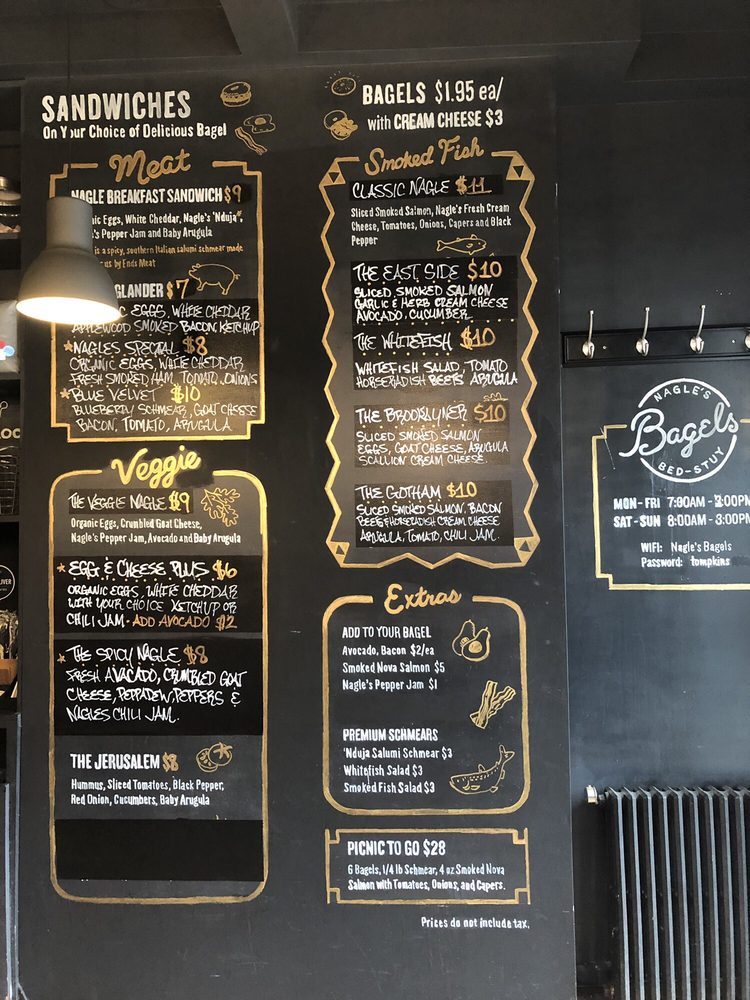 SANDWICHES
On Your Choice of Delicious Bagel
Meat
NAGLE BREAKFAST SANDWICH $9
Eggs, White Cheddar, Nagle's 'Nduja*,
Pepper Jam and Baby Arugula
is a spicy, southern Italian salumi schmear made
us by Ends Meat
$7
EGGS, WHITE CHEDDAR
APPLEWOOD SMOKED BACON KETCHUP
★NAGLES SPECIAL $8
ORGANIC EGGS, WHITE CHEDDAR
FRESH SMOKED HAM, TOMATO, ONIONS
★BLUE VELVET $10
BLUEBERRY SCHMEAR, GOAT CHEESE
BACON, TOMATO, ARUGULA
Veggie
THE VEGGIE NAGLE $9
Organic Eggs, Crumbled Goat Cheese,
Nagle's Pepper Jam, Avocado and Baby Arugula
★EGG & CHEESE PLUS $6
ORGANIC EGGS, WHITE CHEDDAR
WITH YOUR CHOICE KETCHUP OR
CHILI JAM - ADD AVOCADO $2
★THE SPICY NAGLE $8
FRESH AVACADO, CRUMBLED GOAT
CHEESE, PEPPADEW, PEPPERS &
NAGLES CHILI JAM.
THE JERUSALEM $8
Hummus, Sliced Tomatoes, Black Pepper,
Red Onion, Cucumbers, Baby Arugula
BAGELS $1.95 ea/
with CREAM CHEESE $3
Smoked Fish
CLASSIC NAGLE $11
Sliced Smoked Salmon, Nagle's Fresh Cream
Cheese, Tomatoes, Onions, Capers and Black
Pepper
THE EAST SIDE $10
SLICED, SMOKED SALMON
GARLIC & HERB CREAM CHEESE
AVOCADO, CUCUMBER.
THE WHITEFISH $10
WHITEFISH SALAD, TOMATO
HORSERADISH BEETS ARUGULA
THE BROOKLYNER $10
SLICED SMOKED SALMON
EGGS, GOAT CHEESE, ARUGULA
SCALLION CREAM CHEESE.
THE GOTHAM $10
SLICED SMOKED SALMON, BACON
BEET & HORSERADISH CREAM CHEESE
ARUGULA, TOMATO, CHILI JAM.
Extras
ADD TO YOUR BAGEL
Avocado, Bacon $2/ea
Smoked Nova Salmon $5
Nagle's Pepper Jam $1
PREMIUM SCHMEARS
'Nduja Salumi Schmear $3
Whitefish Salad $3
Smoked Fish Salad $3
PICNIC TO GO $28
6 Bagels, 1/4 lb Schmear, 4 oz Smoked Nova
Salmon with Tomatoes, Onions, and Capers.
Prices do not include tax.
NAGLE'S
Bagels
BED-STUY
MON - FRI 7:00AM - 3:00PM
SAT - SUN 8:00AM - 3:00PM
WIFI: Nagle's Bagels
Password: tompkins